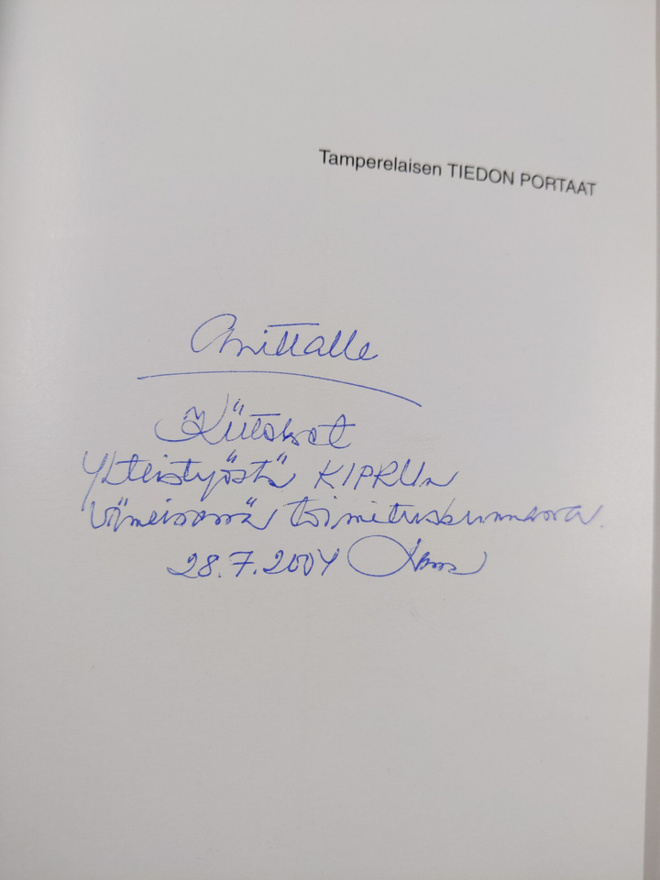 Tamperelaisen TIEDON PORTAAT
Anittalle
Kiitokset
Yhteistyöstä KIPRUn
Viimeisessä toimituskunnassa.
28.7.2004